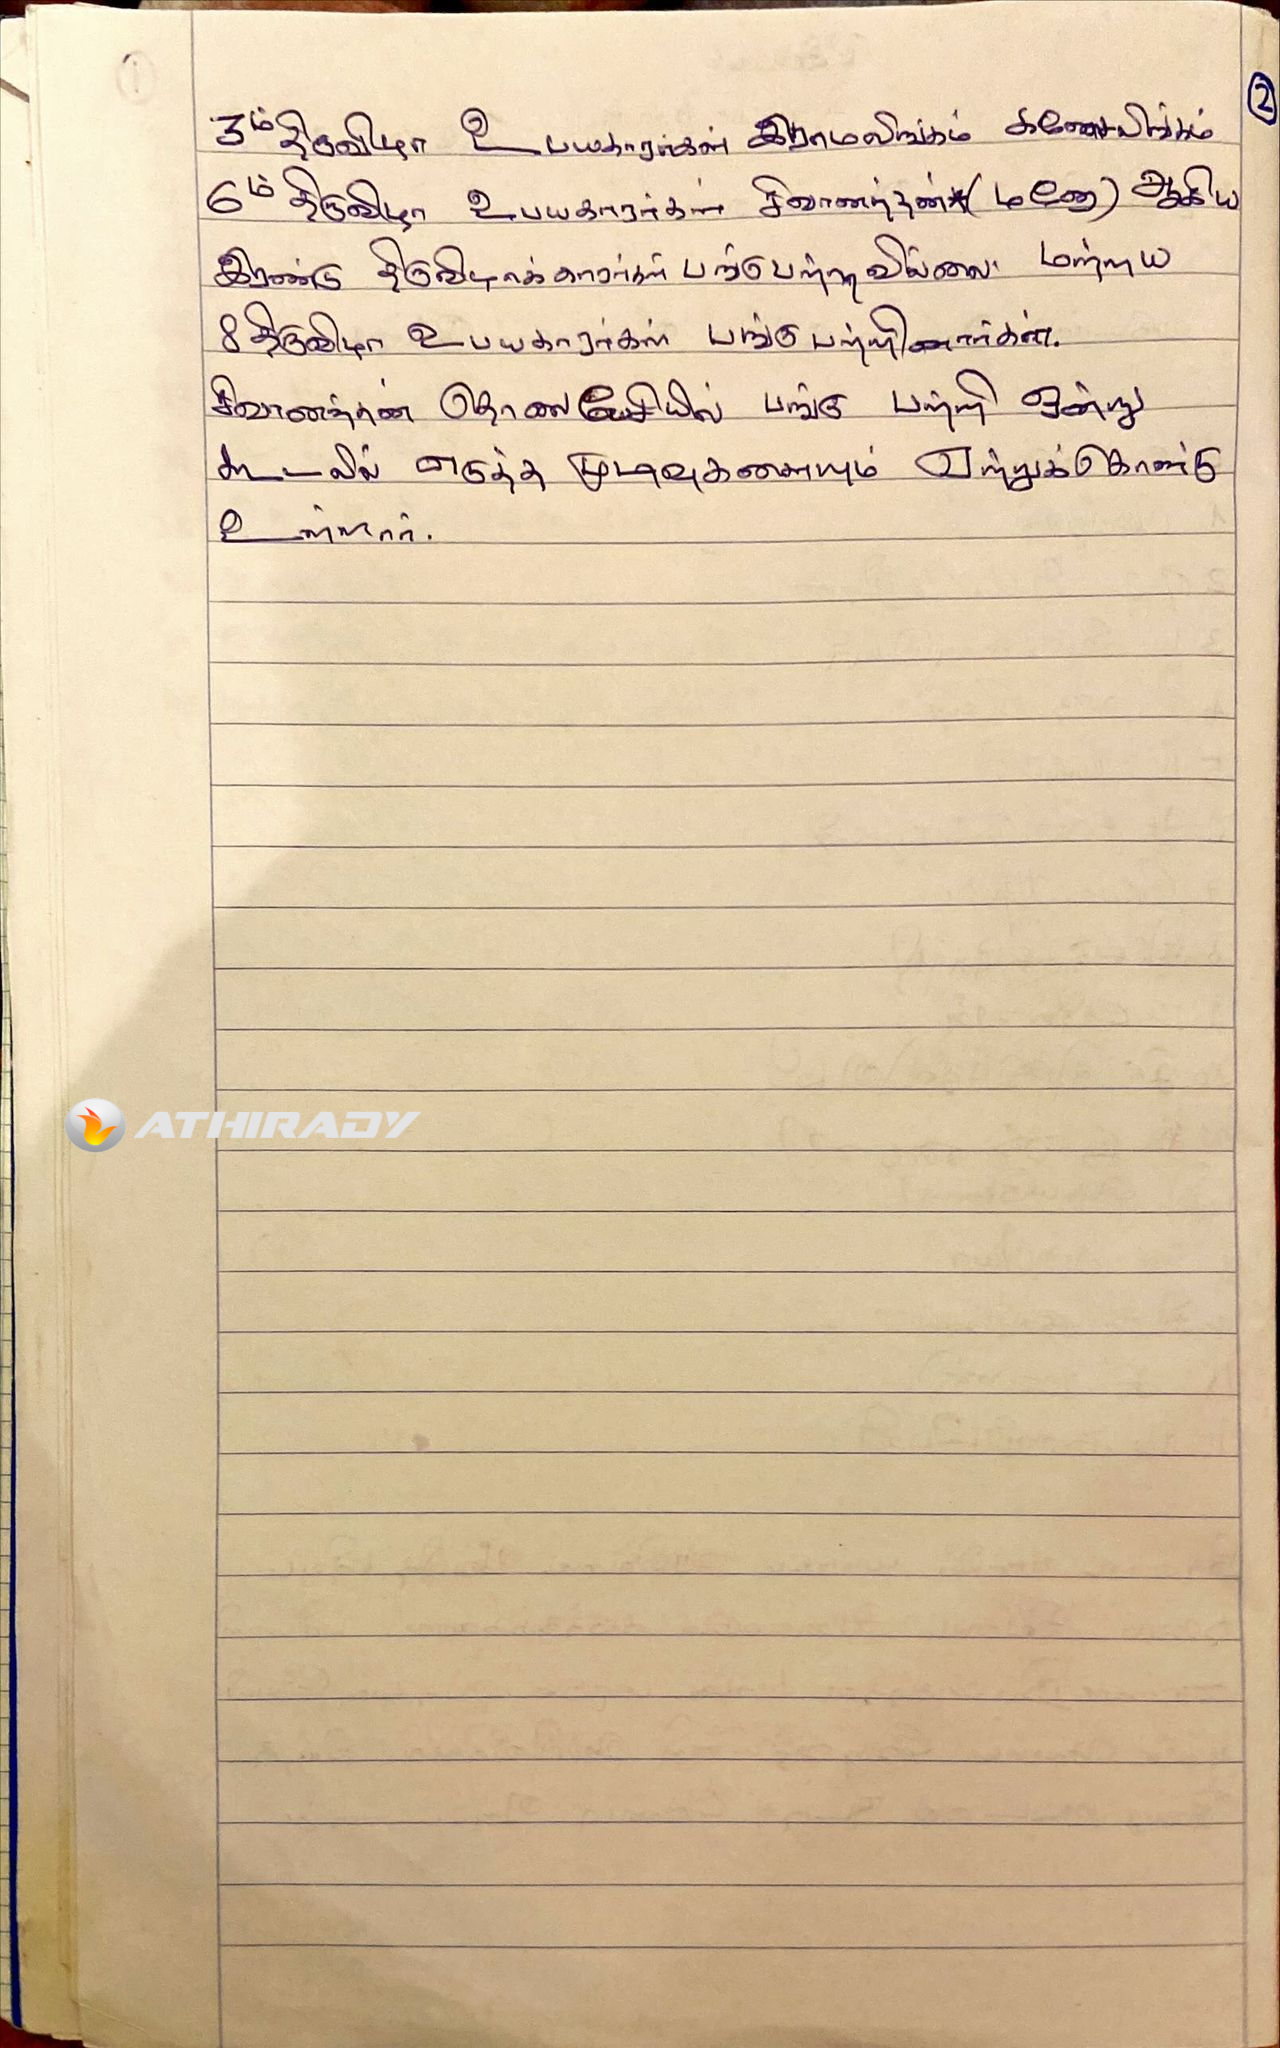 ②
3ம் திருவிழா உபயகாரர்கள் இராமலிங்கம் கணேசலிங்கம்
6ம் திருவிழா உபயகாரர்கள் சிவானந்தன் (மனோ) ஆகிய
இரண்டு திருவிழாக்காரர்கள் பங்குபற்றவில்லை. மற்றய
8 திருவிழா உபயகாரர்கள் பங்கு பற்றினார்கள்.
சிவானந்தன் தொலைபேசியில் பங்கு பற்றி ஒன்று
கூடலில் எடுத்த முடிவுகளையும் ஏற்றுக்கொண்டு
உள்ளார்.
ATHIRADY